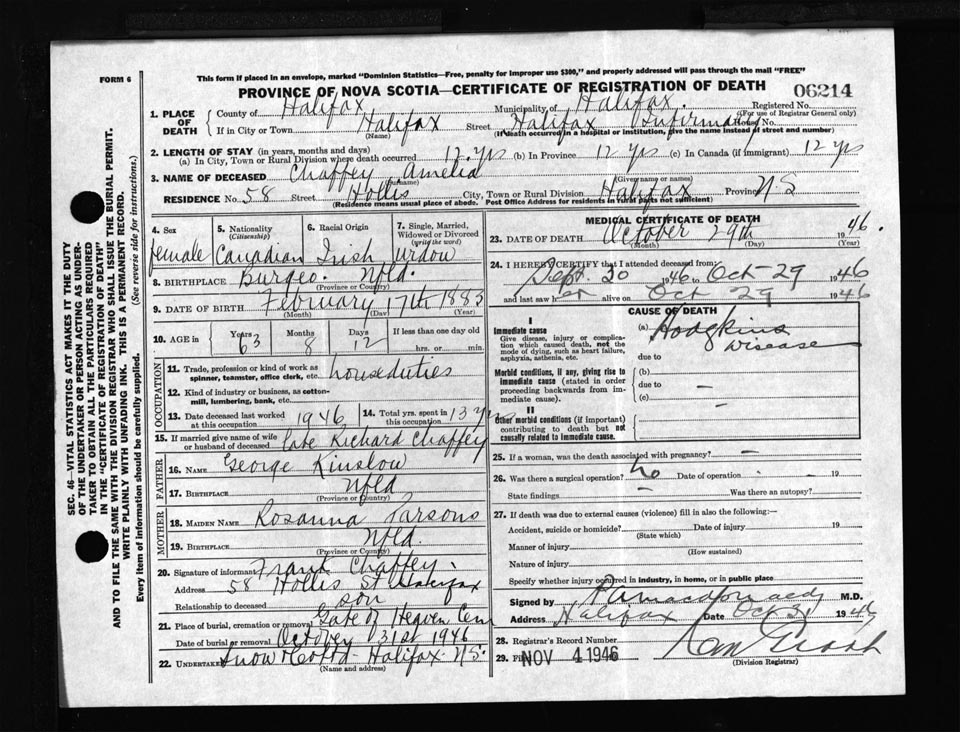 This form if placed in an envelope, marked "Dominion Statistics—Free, penalty for improper use $300," and properly addressed will pass through the mail "FREE"
FORM 6
PROVINCE OF NOVA SCOTIA—CERTIFICATE OF REGISTRATION OF DEATH
06214
1. PLACE OF DEATH County of Halifax Municipality of Halifax. Registered No.
(For use of Registrar General only)
If in City or Town Halifax Street Halifax Infirmary House No.
(Name) (If death occurred in a hospital or institution, give the name instead of street and number)
2. LENGTH OF STAY (in years, months and days)
(a) In City, Town or Rural Division where death occurred 12 yrs (b) In Province 12 yrs (c) In Canada (if immigrant) 12 yrs
3. NAME OF DECEASED Chaffey Amelia
(Surname) (Given name or names)
RESIDENCE No. 58 Street Hollis City, Town or Rural Division Halifax Province N-S
(Residence means usual place of abode. Post Office Address for residents in rural parts not sufficient)
4. Sex female
5. Nationality (Citizenship) Canadian
6. Racial Origin Irish
7. Single, Married, Widowed or Divorced (write the word) Widow
8. BIRTHPLACE Burgeo. Nfld.
(Province or Country)
9. DATE OF BIRTH February 17th 1883
(Month) (Day) (Year)
10. AGE in Years 63 Months 8 Days 12 If less than one day old
hrs. or min.
OCCUPATION
11. Trade, profession or kind of work as spinner, teamster, office clerk, etc. house duties
12. Kind of industry or business, as cotton-mill, lumbering, bank, etc.
13. Date deceased last worked at this occupation 1946
14. Total yrs. spent in this occupation 13 yrs
15. If married give name of wife or husband of deceased late Richard Chaffey
FATHER
16. NAME George Kinslow
17. BIRTHPLACE Nfld
(Province or Country)
MOTHER
18. MAIDEN NAME Rosanna Parsons
19. BIRTHPLACE Nfld.
(Province or Country)
20. Signature of informant Frank Chaffey.
Address 58 Hollis St Halifax
Relationship to deceased son
21. Place of burial, cremation or removal Gate of Heaven Cem
Date of burial or removal October 31st 1946
22. UNDERTAKER Snow Halifax N.S.
(Name and address)
MEDICAL CERTIFICATE OF DEATH
23. DATE OF DEATH October 29th 1946.
(Month) (Day) (Year)
24. I HEREBY CERTIFY that I attended deceased from:
Sept. 30 1946 to Oct-29 1946
and last saw her alive on Oct 29 1946
CAUSE OF DEATH
I
Immediate cause
Give disease, injury or complication which caused death, not the mode of dying, such as heart failure, asphyxia, asthenia, etc.
(a) Hodgkins Disease
due to
Morbid conditions, if any, giving rise to immediate cause (stated in order proceeding backwards from immediate cause).
(b)
due to —
(c) —
II
Other morbid conditions (if important) contributing to death but not causally related to immediate cause.
25. If a woman, was the death associated with pregnancy? —
26. Was there a surgical operation? no Date of operation - - 19
State findings — Was there an autopsy?
27. If death was due to external causes (violence) fill in also the following:—
Accident, suicide or homicide? Date of injury 19
(State which)
Manner of injury
(How sustained)
Nature of injury
Specify whether injury occurred in industry, in home, or in public place
Signed by M.D.
Address Halifax Date Oct 31 1946
28. Registrar's Record Number
29. Filed NOV 4 1946
(Division Registrar)
SEC. 46—VITAL STATISTICS ACT MAKES IT THE DUTY
OF THE UNDERTAKER OR PERSON ACTING AS UNDER-
TAKER TO OBTAIN ALL THE PARTICULARS REQUIRED
IN THE "CERTIFICATE OF REGISTRATION OF DEATH"
AND TO FILE THE SAME WITH THE DIVISION REGISTRAR WHO SHALL ISSUE THE BURIAL PERMIT.
WRITE PLAINLY WITH UNFADING INK. THIS IS A PERMANENT RECORD.
Every item of information should be carefully supplied. (See reverse side for instructions.)